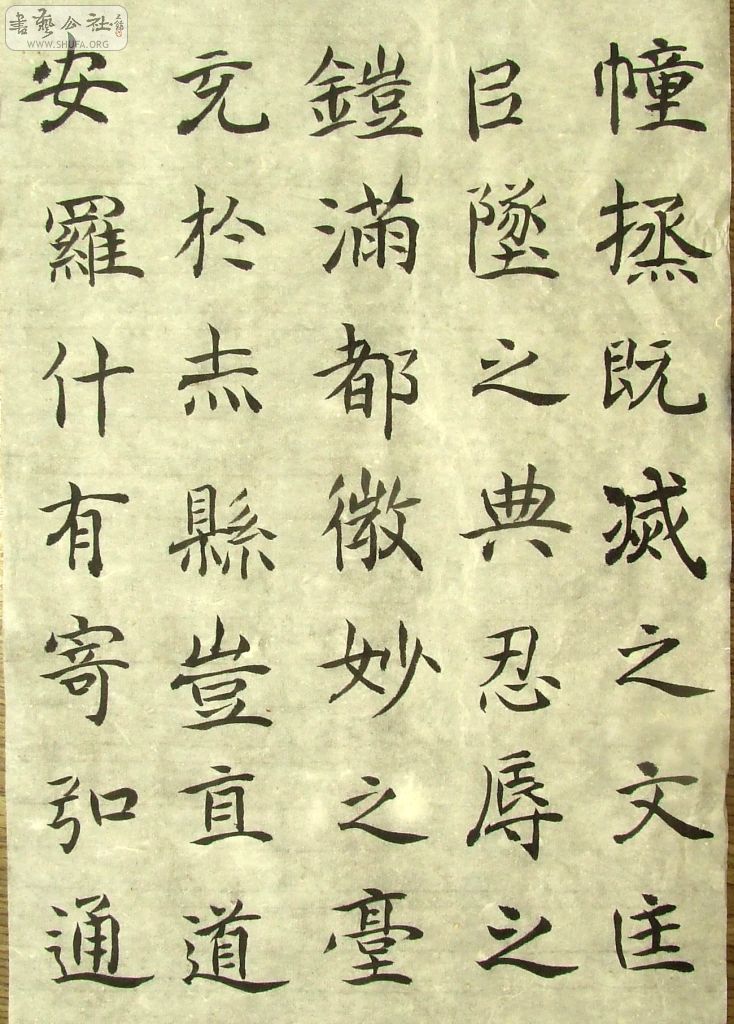 書藝公社
WWW.SHUFA.ORG
幢拯既滅之文匡
已墜之典忍辱之
鎧滿都微妙之臺
充於赤縣豈直道
安羅什有寄弘通